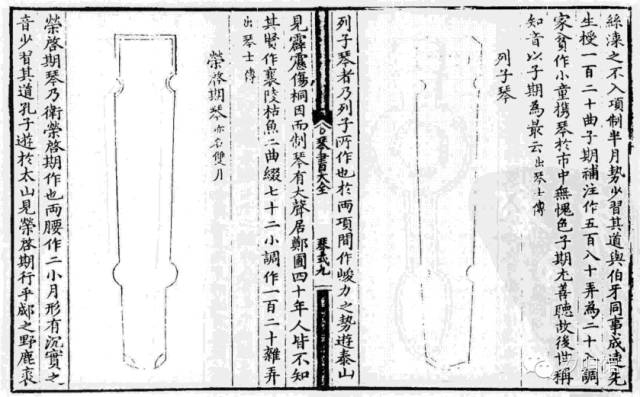 絲湅之不入項制半月勢少習其道與伯牙同事成連先
生授一百二十曲子期補注作五百八十弄為二十調
家貧作小童攜琴於市中無愧色子期尤善聽故後世稱
知音以子期為最云出琴士傳
列子琴
列子琴者乃列子所作也於兩項間作峻力之勢遊泰山
見霹靂傷桐因而制琴有大聲居鄭國四十年人皆不知
其賢作襄陵枯魚二曲綴七十二小調作一百二十雜弄
出琴士傳
榮啓期琴亦名雙月
榮啓期琴乃衛榮啓期作也兩腰作二小月形有沉實之
音少習其道孔子遊於太山見榮啓期行乎郕之野鹿裘
琴書大全
琴式九